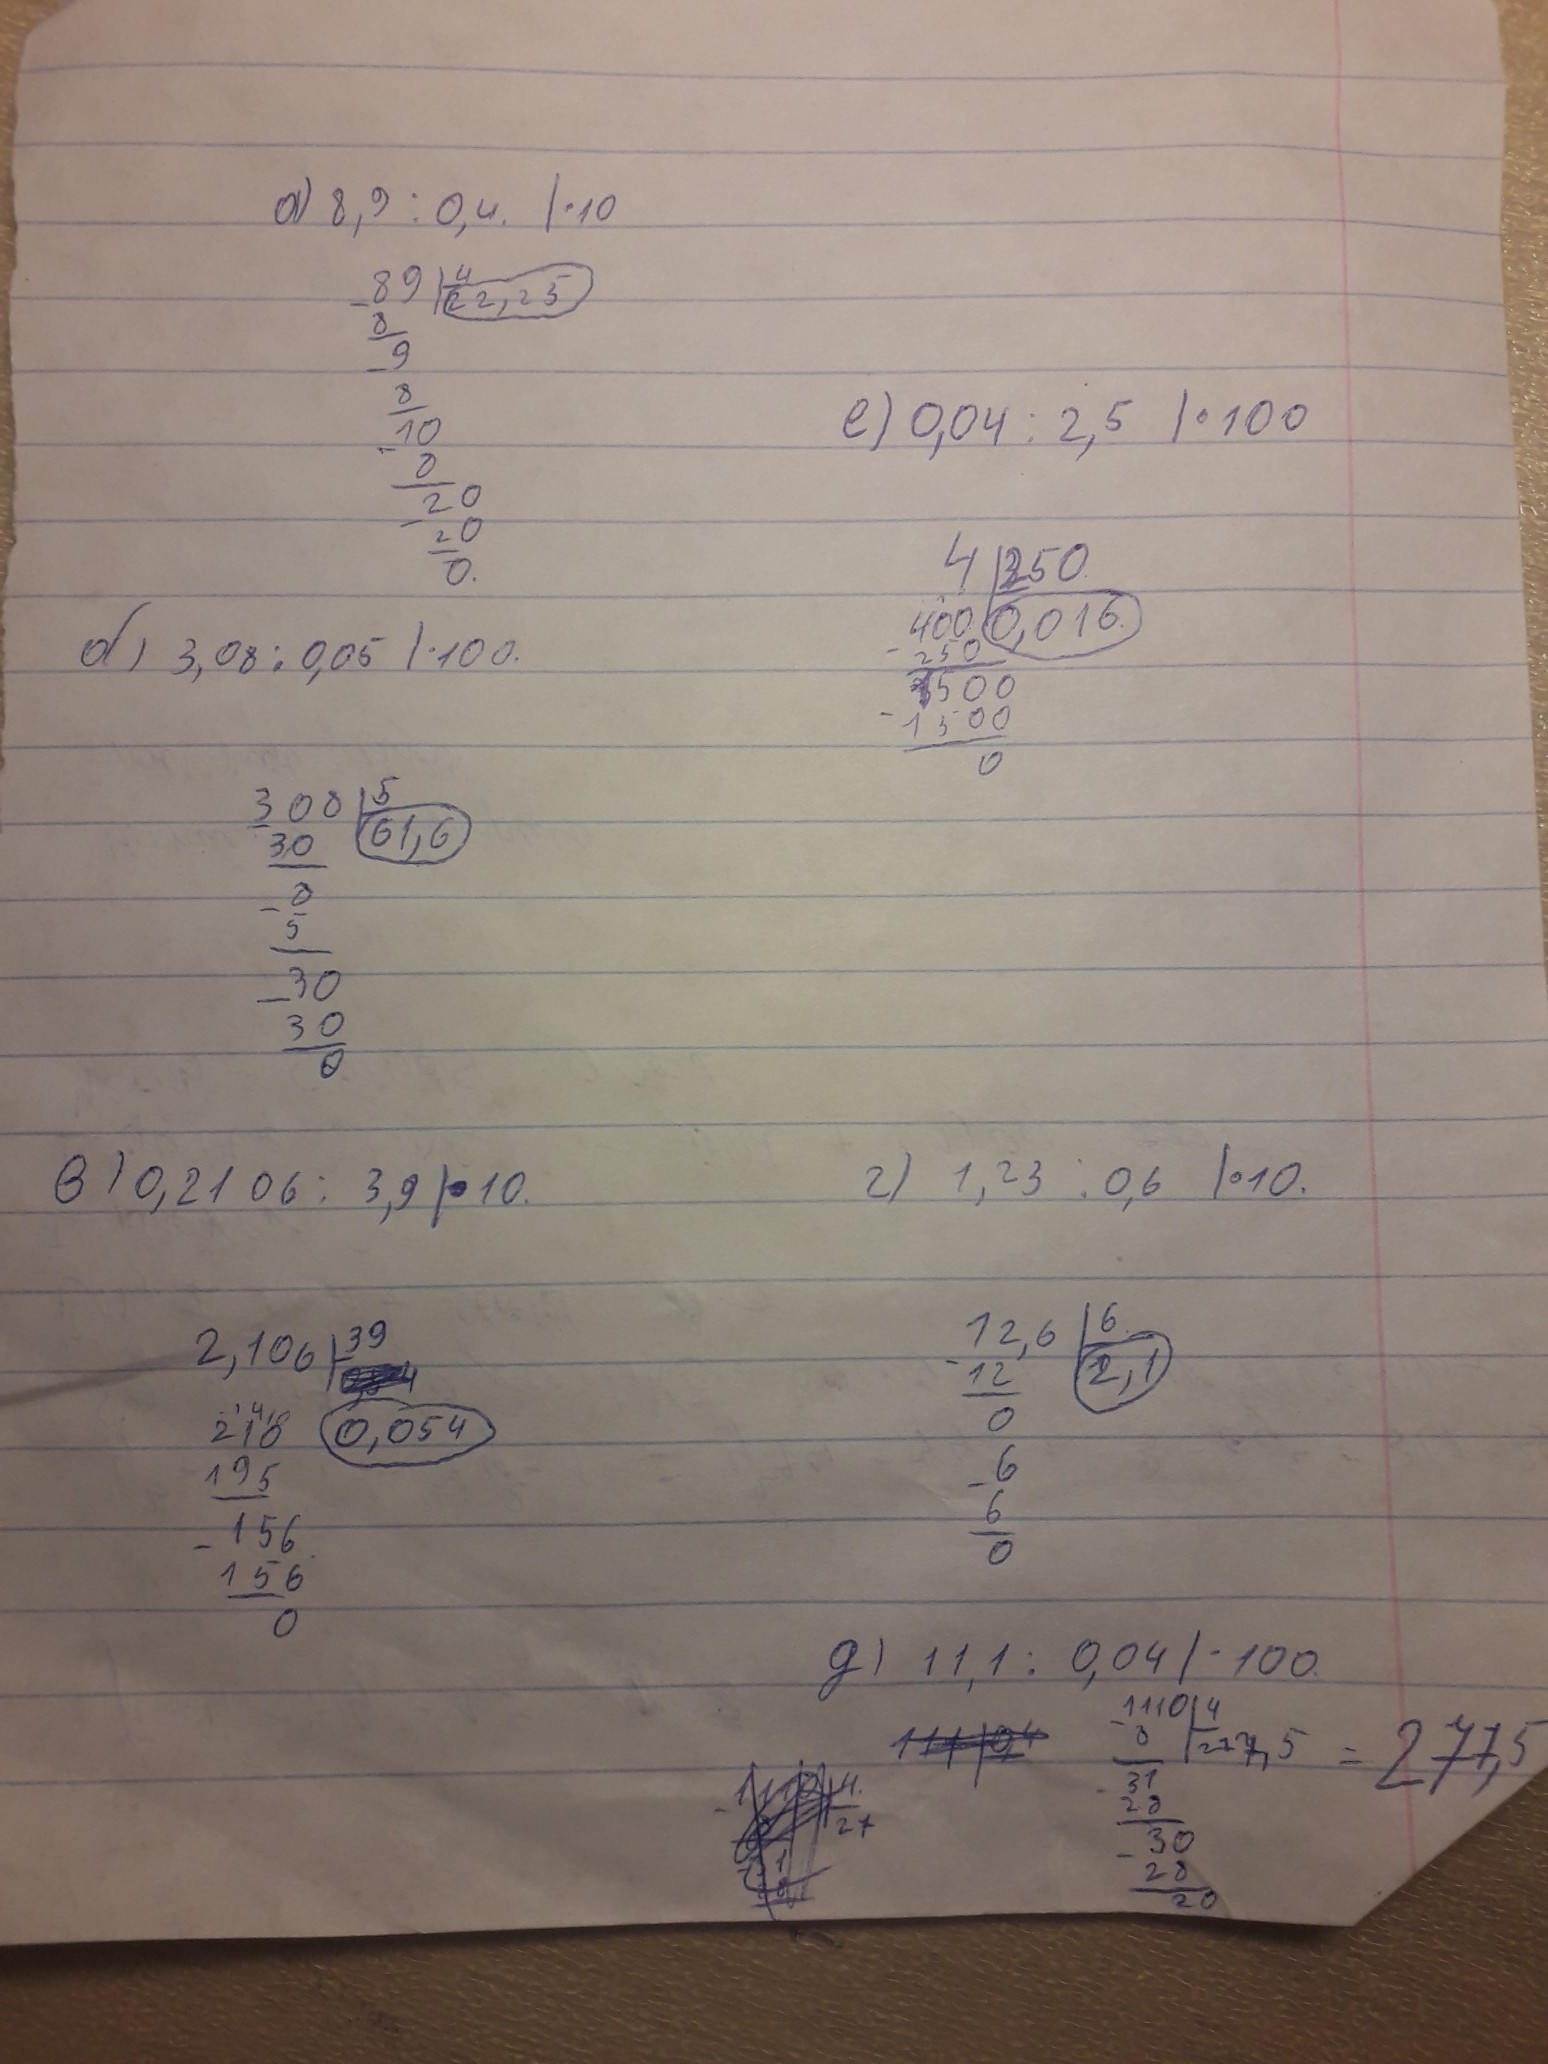 а) 8,9 : 0,4. |·10
89 | 4
22,25
8
9
8
10
8
20
20
0.
б) 3,08 : 0,05 |·100.
308 | 5
61,6
30
8
5
30
30
0
в) 0,2106 : 3,9 |·10.
2,106 | 39
0,054
210
195
156
156
0
е) 0,04 : 2,5 |·100
4 | 250
400 0,016
250
1500
1500
0
г) 1,23 : 0,6 |·10.
12,6 | 6
12 2,1
0
6
6
0
д) 11,1 : 0,04 |·100
1110 | 4
8 277,5 = 277,5
31
28
30
28
20